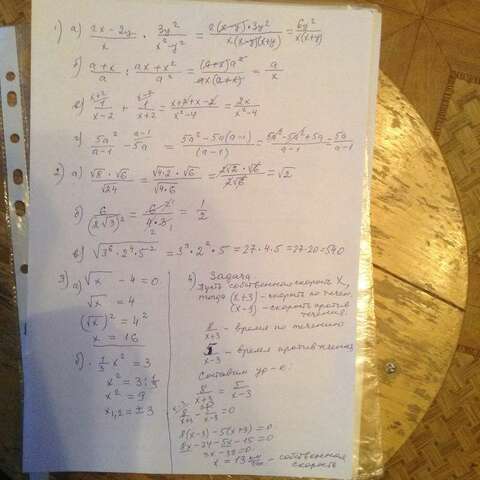 1) а) (2x-2y)/x · 3y²/(x²-y²) = 2(x-y)·3y²/(x·(x-y)(x+y)) = 6y²/(x(x+y))
б) (a+x)/a : (ax+x²)/a² = (a+x)a²/(ax(a+x)) = a/x
в) 1/(x-2) + 1/(x+2) = (x+2+x-2)/(x²-4) = 2x/(x²-4)
г) 5a²/(a-1) - 5a = (5a²-5a(a-1))/(a-1) = (5a²-5a²+5a)/(a-1) = 5a/(a-1)
2) а) √8·√6/√24 = √4·2·√6/√4·6 = 2√2·√6/2√6 = √2
б) 6/(2√3)² = 6/(4·3) = 1/2
в) √3⁶·2⁴·5² = 3³·2²·5 = 27·4·5 = 27·20 = 540
3) а) √x - 4 = 0
√x = 4
(√x)² = 4²
x = 16
б) 1/3 x² = 3
x² = 3 : 1/3
x² = 9
x1,2 = ±3
4) Задача
Пусть собственная скорость x,
тогда (x+3) - скорость по течен.
(x-3) - скорость против
течения.
8/(x+3) - время по течению
5/(x-3) - время против течения
Составим ур-е:
8/(x+3) = 5/(x-3)
8(x-3)-5(x+3)=0
8x-24-5x-15=0
3x-39=0
x = 13 - собственная
скорость